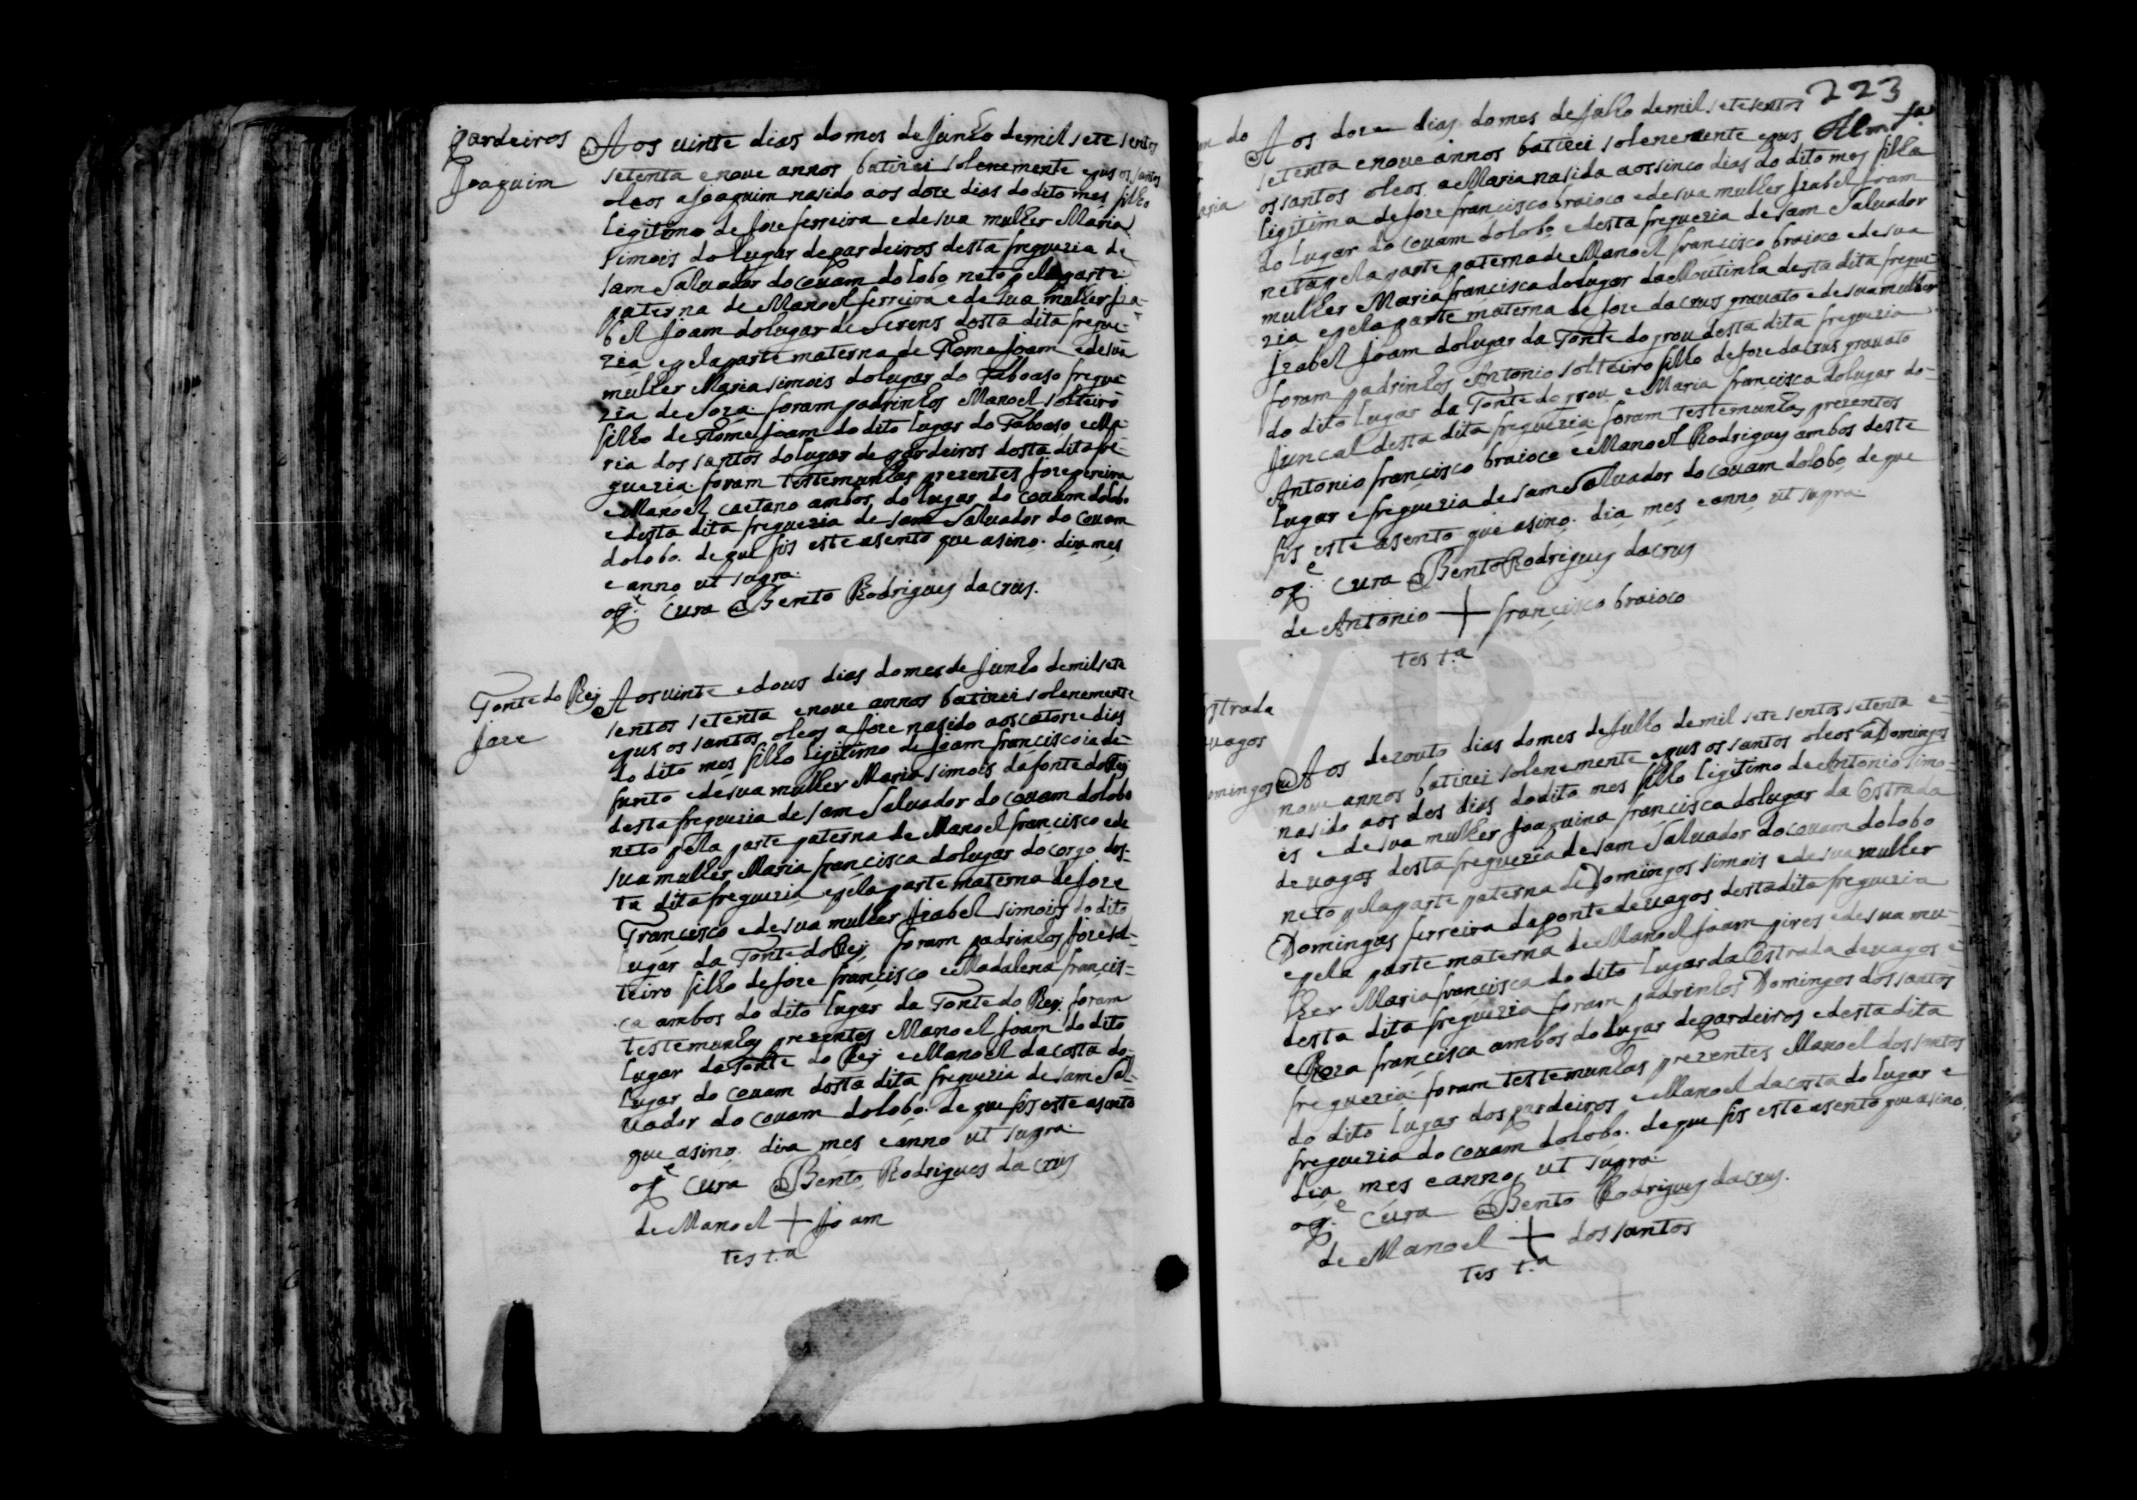 pardeiros
Joaquim
Aos uinte dias domes de Junho demil sete sentos
setenta enoue annos batizei solenemente epus os santos
oleos aJoaquim nasido aos doze dias dodito mes filho
Legitimo de Joze ferreira edesua mulher Maria
simois dolugar depardeiros desta freguezia de
sam Saluador docouam dolobo neto pelaparte
paterna de Manoel ferreira edesua mulher Iza-
bel Joam dolugar de desta dita fregue-
zia epelaparte materna de Thome Joam edesua
mulher Maria simois dolugar do Taboaso fregue-
zia de Soza. foram padrinhos Manoel solteiro
filho de Thome Joam do dito lugar do Taboaso eMa-
ria dos santos dolugar de pardeiros desta dita fre-
guezia. foram testemunhas prezentes Joze pereira
eManoel caetano ambos do lugar do couam dolobo
edesta dita freguezia de sam Saluador do couam
dolobo. de que fis este asento que asino. dia mes
e anno ut supra.
oP.e Cura Bento Rodrigues dacrus.
Fonte do Rej
Joze
Aos uinte edous dias domes de Junho demil sete
sentos setenta enoue annos batizei solenemente
epus os santos oleos a Joze nasido aos catorze dias
do dito mes filho Ligitimo de Joam francisco ia de-
funto edesua mulher Maria simois da fonte do Rej
desta freguezia de sam Saluador do couam dolobo
neto pela parte paterna de Manoel francisco ede
sua mulher Maria francisca dolugar do corgo des-
ta dita freguezia epelaparte materna de Joze
Francisco edesua mulher Izabel simois do dito
Lugar da Fonte do Rej foram padrinhos Joze sol-
teiro filho de Joze francisco eMadalena francis-
ca ambos do dito lugar da Fonte do Rej. foram
testemunhas prezentes Manoel Joam do dito
Lugar da Fonte do Rej eManoel dacosta do-
Lugar do couam desta dita freguezia de sam Sal-
uador do couam dolobo. de que fis este asento
que asino. dia mes eanno ut supra.
oP.e Cura Bento Rodrigues da crus
de Manoel + Joam
tes t.a
223
Aos doze dias do mes de Julho demil setesentos
setenta enoue annos batizei solenemente epus
ossantos oleos aMaria nasida aossinco dias do dito mes filha
Ligitima de Joze francisco braioco edesua mulher Izabel Joam
do Lugar do couam dolobo edesta freguezia de sam Saluador
neta pela parte paterna de Manoel francisco braioco edesua
mulher Maria francisca dolugar daMoitinha desta dita fregue-
zia epela parte materna de Joze dacrus grauato edesuamulher
Izabel Joam dolugar da Fonte do grou desta dita freguezia
foram padrinhos Antonio solteiro filho de Joze dacrus grauato
do dito lugar da Fonte do grou eMaria francisca dolugar do-
Juncal desta dita freguezia. foram Testemunhas prezentes
Antonio francisco braioco eManoel Rodrigues ambos deste
Lugar e freguezia de sam Saluador do couam dolobo, de que
fis este asento que asino. dia mes eanno ut supra.
oP.e Cura Bento Rodrigues dacrus
de Antonio + francisco braioco
tes t.a
strada
uagos
omingos
Aos dezouto dias domes de Julho demil sete sentos setenta e-
noue annos batizei solenemente epus os santos oleos aDomingos
nasido aos dos dias dodito mes filho Ligitimo de Antonio simo-
es edesua mulher Joaquina francisca dolugar da Estrada
de uagos desta freguezia de sam Saluador do couam dolobo
neto pelaparte paterna de Domingos simois edesua mulher
Domingas ferreira daponte deuagos desta dita freguezia
epela parte materna de Manoel Joam pires edesua mu-
lher Maria francisca do dito Lugar da Estrada deuagos e-
desta dita freguezia foram padrinhos Domingos dos santos
eRoza francisca ambos do lugar depardeiros edesta dita
freguezia. foram testemunhas prezentes Manoel dos santos
do dito Lugar dos pardeiros eManoel dacosta do lugar e
freguezia do couam dolobo. de que fis este asento que asino.
dia mes eanno ut supra.
oP.e Cura Bento Rodrigues dacrus.
de Manoel + dos santos
tes t.a